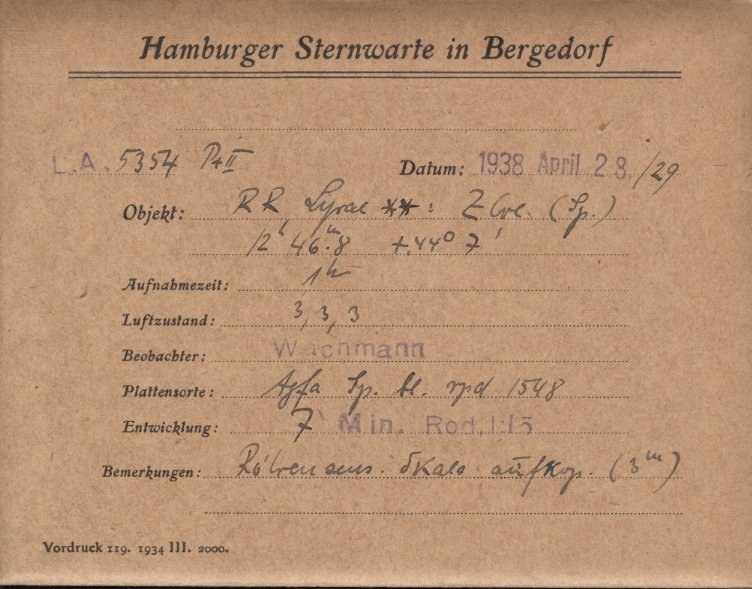 Hamburger Sternwarte in Bergedorf
L.A. 5354 Pr II Datum: 1938 April 28 /29
Objekt: RR Lyrae **: Z CVn. (Sp.)
12h 46m.8 +44° 7'
Aufnahmezeit: 1h
Luftzustand: 3, 3, 3
Beobachter: Wachmann
Plattensorte: Agfa Sp. bl. 1548
Entwicklung: 7 Min. Rod, 1:15
Bemerkungen: Röhrensens. Skala aufkop. (3m)
Vordruck 119. 1934 III. 2000.